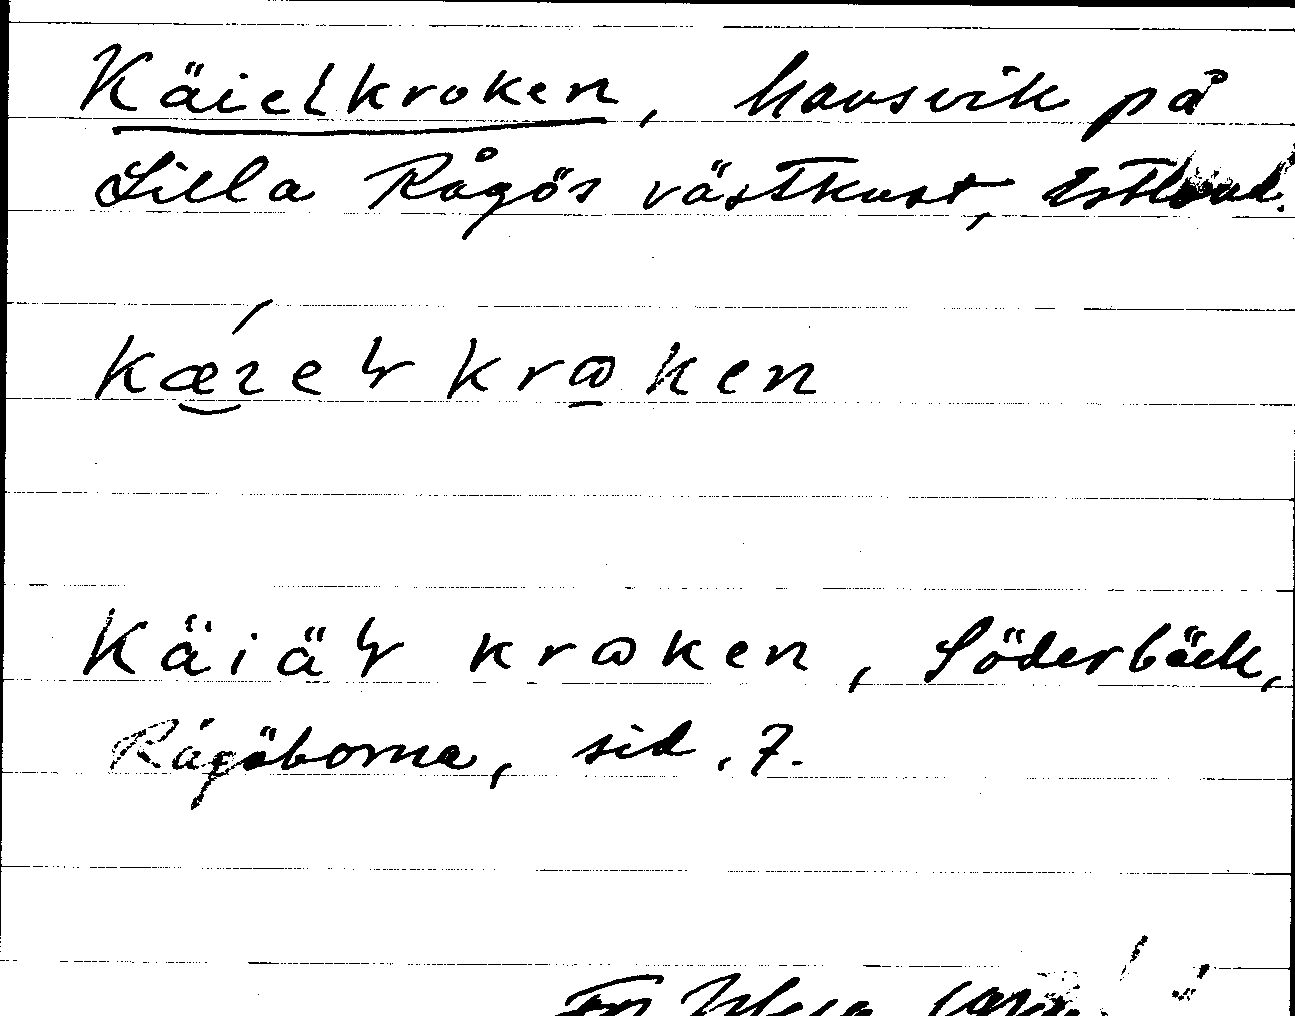 Käielkroken, havsvik på
Lilla Rågös västkust, Estland.
Käiäł krɷken, Söderbäck,
Rågöborna, sid. 7.